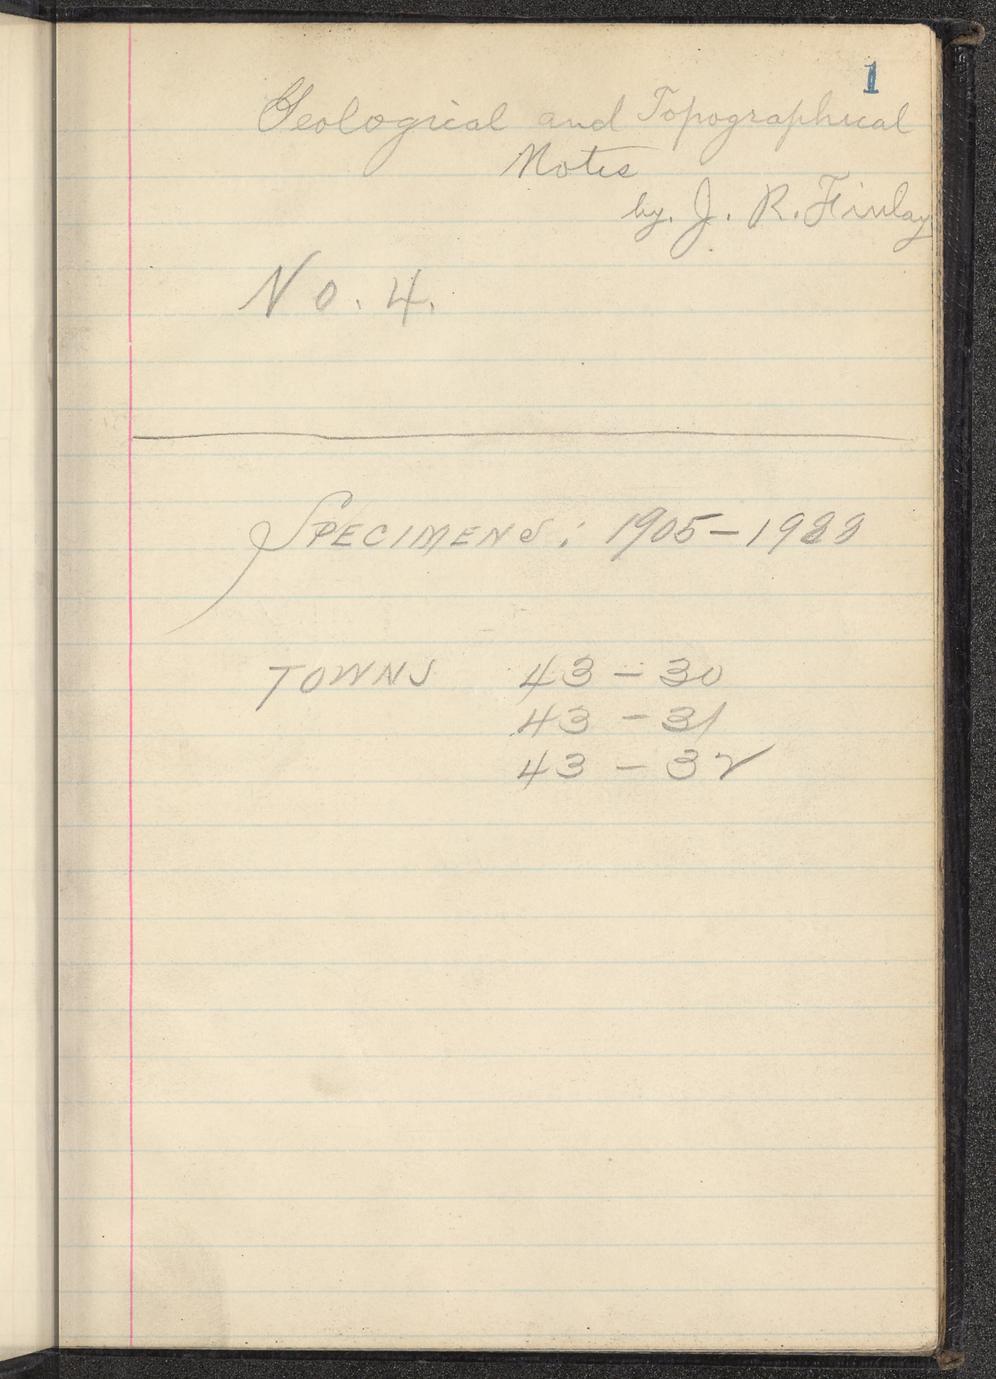 1
Geological and Topographical
Notes
by. J. R. Finlay
No. 4.
SPECIMENS: 1905-1988
TOWNS 43-30
43-31
43-32